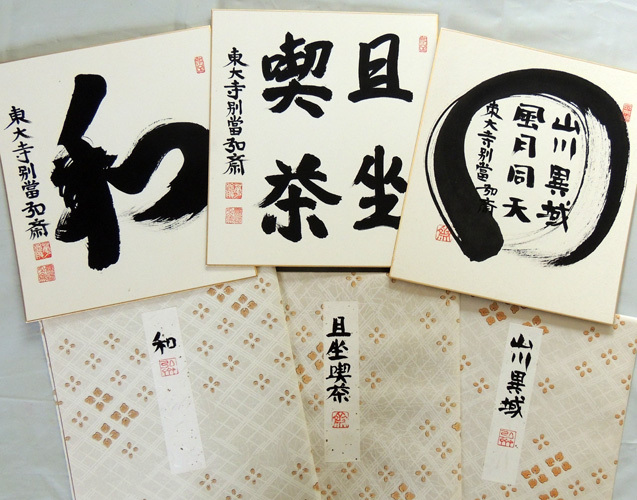 和
東大寺別當弘斎
且坐
喫茶
東大寺別當弘斎
山川異域
風月同天
東大寺別當弘斎
和
且坐喫茶
山川異域